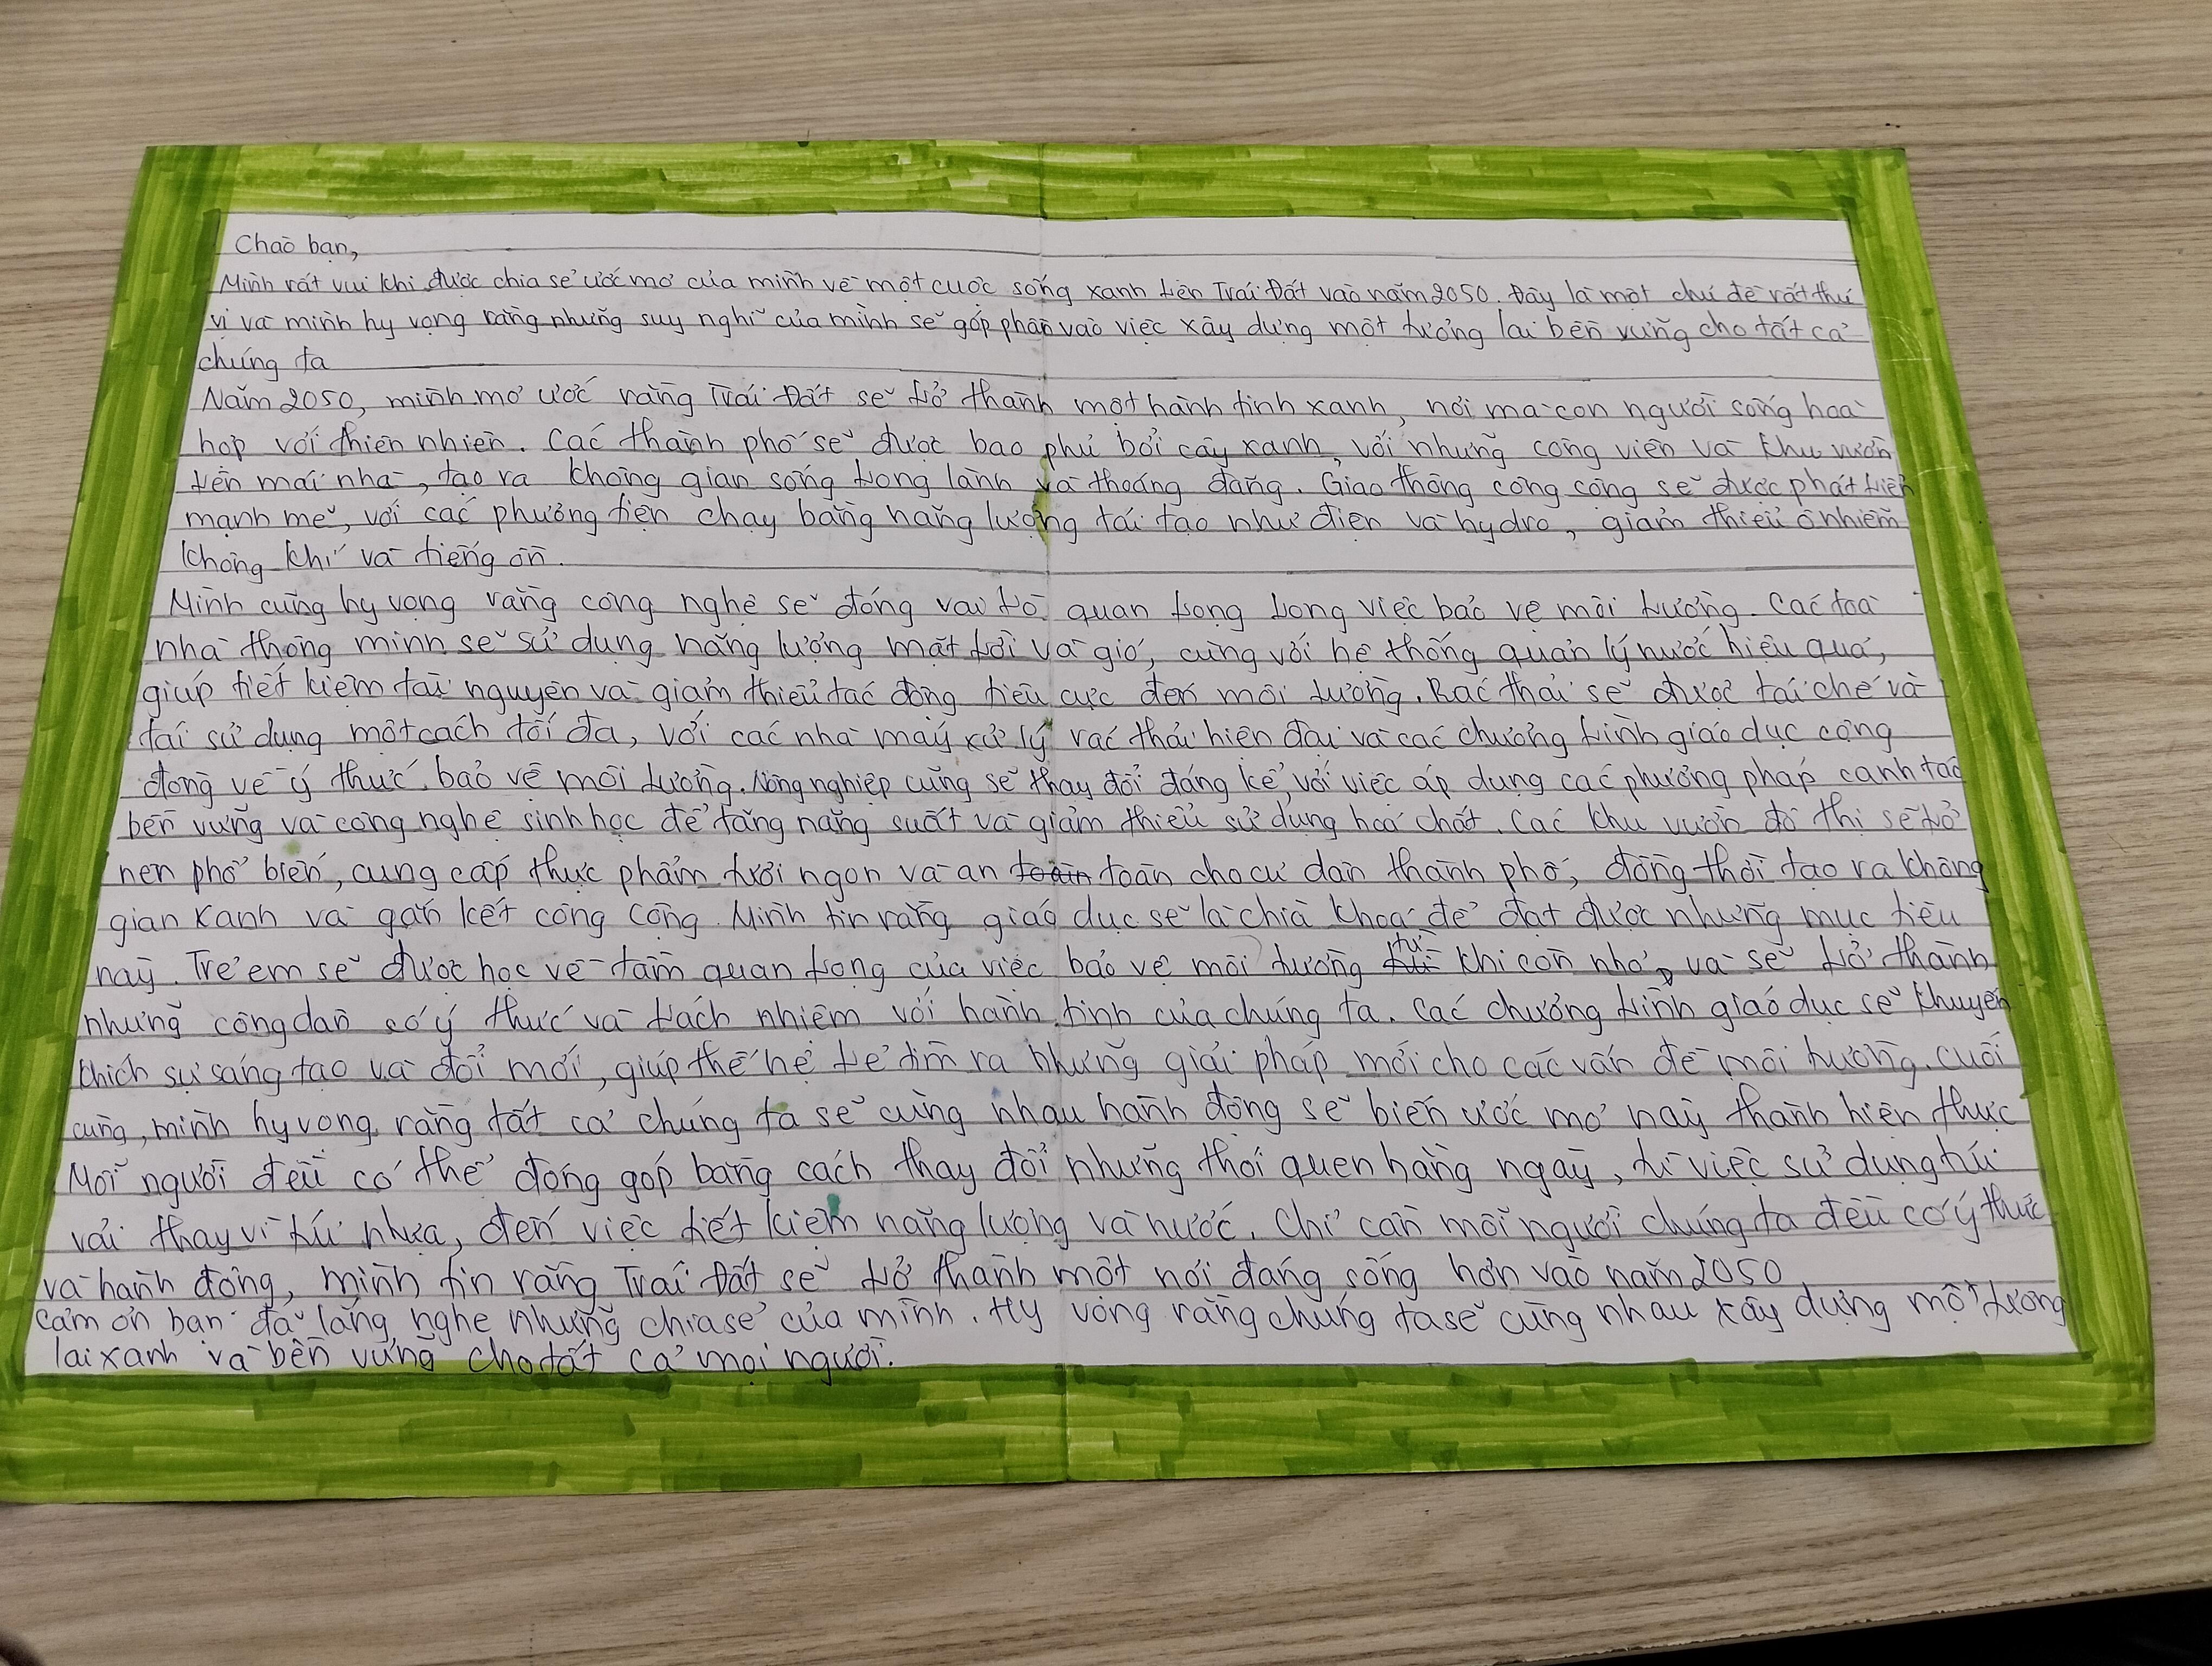 Chào bạn,
Mình rất vui khi được chia sẻ ước mơ của mình về một cuộc sống xanh trên Trái Đất vào năm 2050. Đây là một chủ đề rất thú
vị và mình hy vọng rằng những suy nghĩ của mình sẽ góp phần vào việc xây dựng một tương lai bền vững cho tất cả
chúng ta
Năm 2050, mình mơ ước rằng Trái Đất sẽ trở thành một hành tinh xanh, nơi mà con người sống hoà
hợp với thiên nhiên. Các thành phố sẽ được bao phủ bởi cây xanh, với những công viên và khu vườn
trên mái nhà, tạo ra không gian sống trong lành và thoáng đãng. Giao thông công cộng sẽ được phát triển
mạnh mẽ, với các phương tiện chạy bằng năng lượng tái tạo như điện và hydro, giảm thiểu ô nhiễm
không khí và tiếng ồn.
Mình cũng hy vọng rằng công nghệ sẽ đóng vai trò quan trọng trong việc bảo vệ môi trường. Các toà
nhà thông minh sẽ sử dụng năng lượng mặt trời và gió, cùng với hệ thống quản lý nước hiệu quả,
giúp tiết kiệm tài nguyên và giảm thiểu tác động tiêu cực đến môi trường. Rác thải sẽ được tái chế và
tái sử dụng một cách tối đa, với các nhà máy xử lý rác thải hiện đại và các chương trình giáo dục cộng
đồng về ý thức bảo vệ môi trường. Nông nghiệp cũng sẽ thay đổi đáng kể, với việc áp dụng các phương pháp canh tác
bền vững và công nghệ sinh học để tăng năng suất và giảm thiểu sử dụng hoá chất. Các khu vườn đô thị sẽ trở
nên phổ biến, cung cấp thực phẩm tươi ngon và an toàn cho cư dân thành phố, đồng thời tạo ra không
gian xanh và gắn kết cộng cộng. Mình tin rằng giáo dục sẽ là chìa khoá để đạt được những mục tiêu
này. Trẻ em sẽ được học về tầm quan trọng của việc bảo vệ môi trường từ khi còn nhỏ, và sẽ trở thành
những công dân có ý thức và trách nhiệm với hành tinh của chúng ta. Các chương trình giáo dục sẽ khuyến
khích sự sáng tạo và đổi mới, giúp thế hệ trẻ tìm ra những giải pháp mới cho các vấn đề môi trường. Cuối
cùng, mình hy vọng rằng tất cả chúng ta sẽ cùng nhau hành động sẽ biến ước mơ này thành hiện thực
Mỗi người đều có thể đóng góp bằng cách thay đổi những thói quen hàng ngày, từ việc sử dụng túi
vải thay vì túi nhựa, đến việc tiết kiệm năng lượng và nước. Chỉ cần mỗi người chúng ta đều có ý thức
và hành động, mình tin rằng Trái Đất sẽ trở thành một nơi đáng sống hơn vào năm 2050
Cảm ơn bạn đã lắng nghe những chia sẻ của mình. Hy vọng rằng chúng ta sẽ cùng nhau xây dựng một tương
lai xanh và bền vững cho tất cả mọi người.